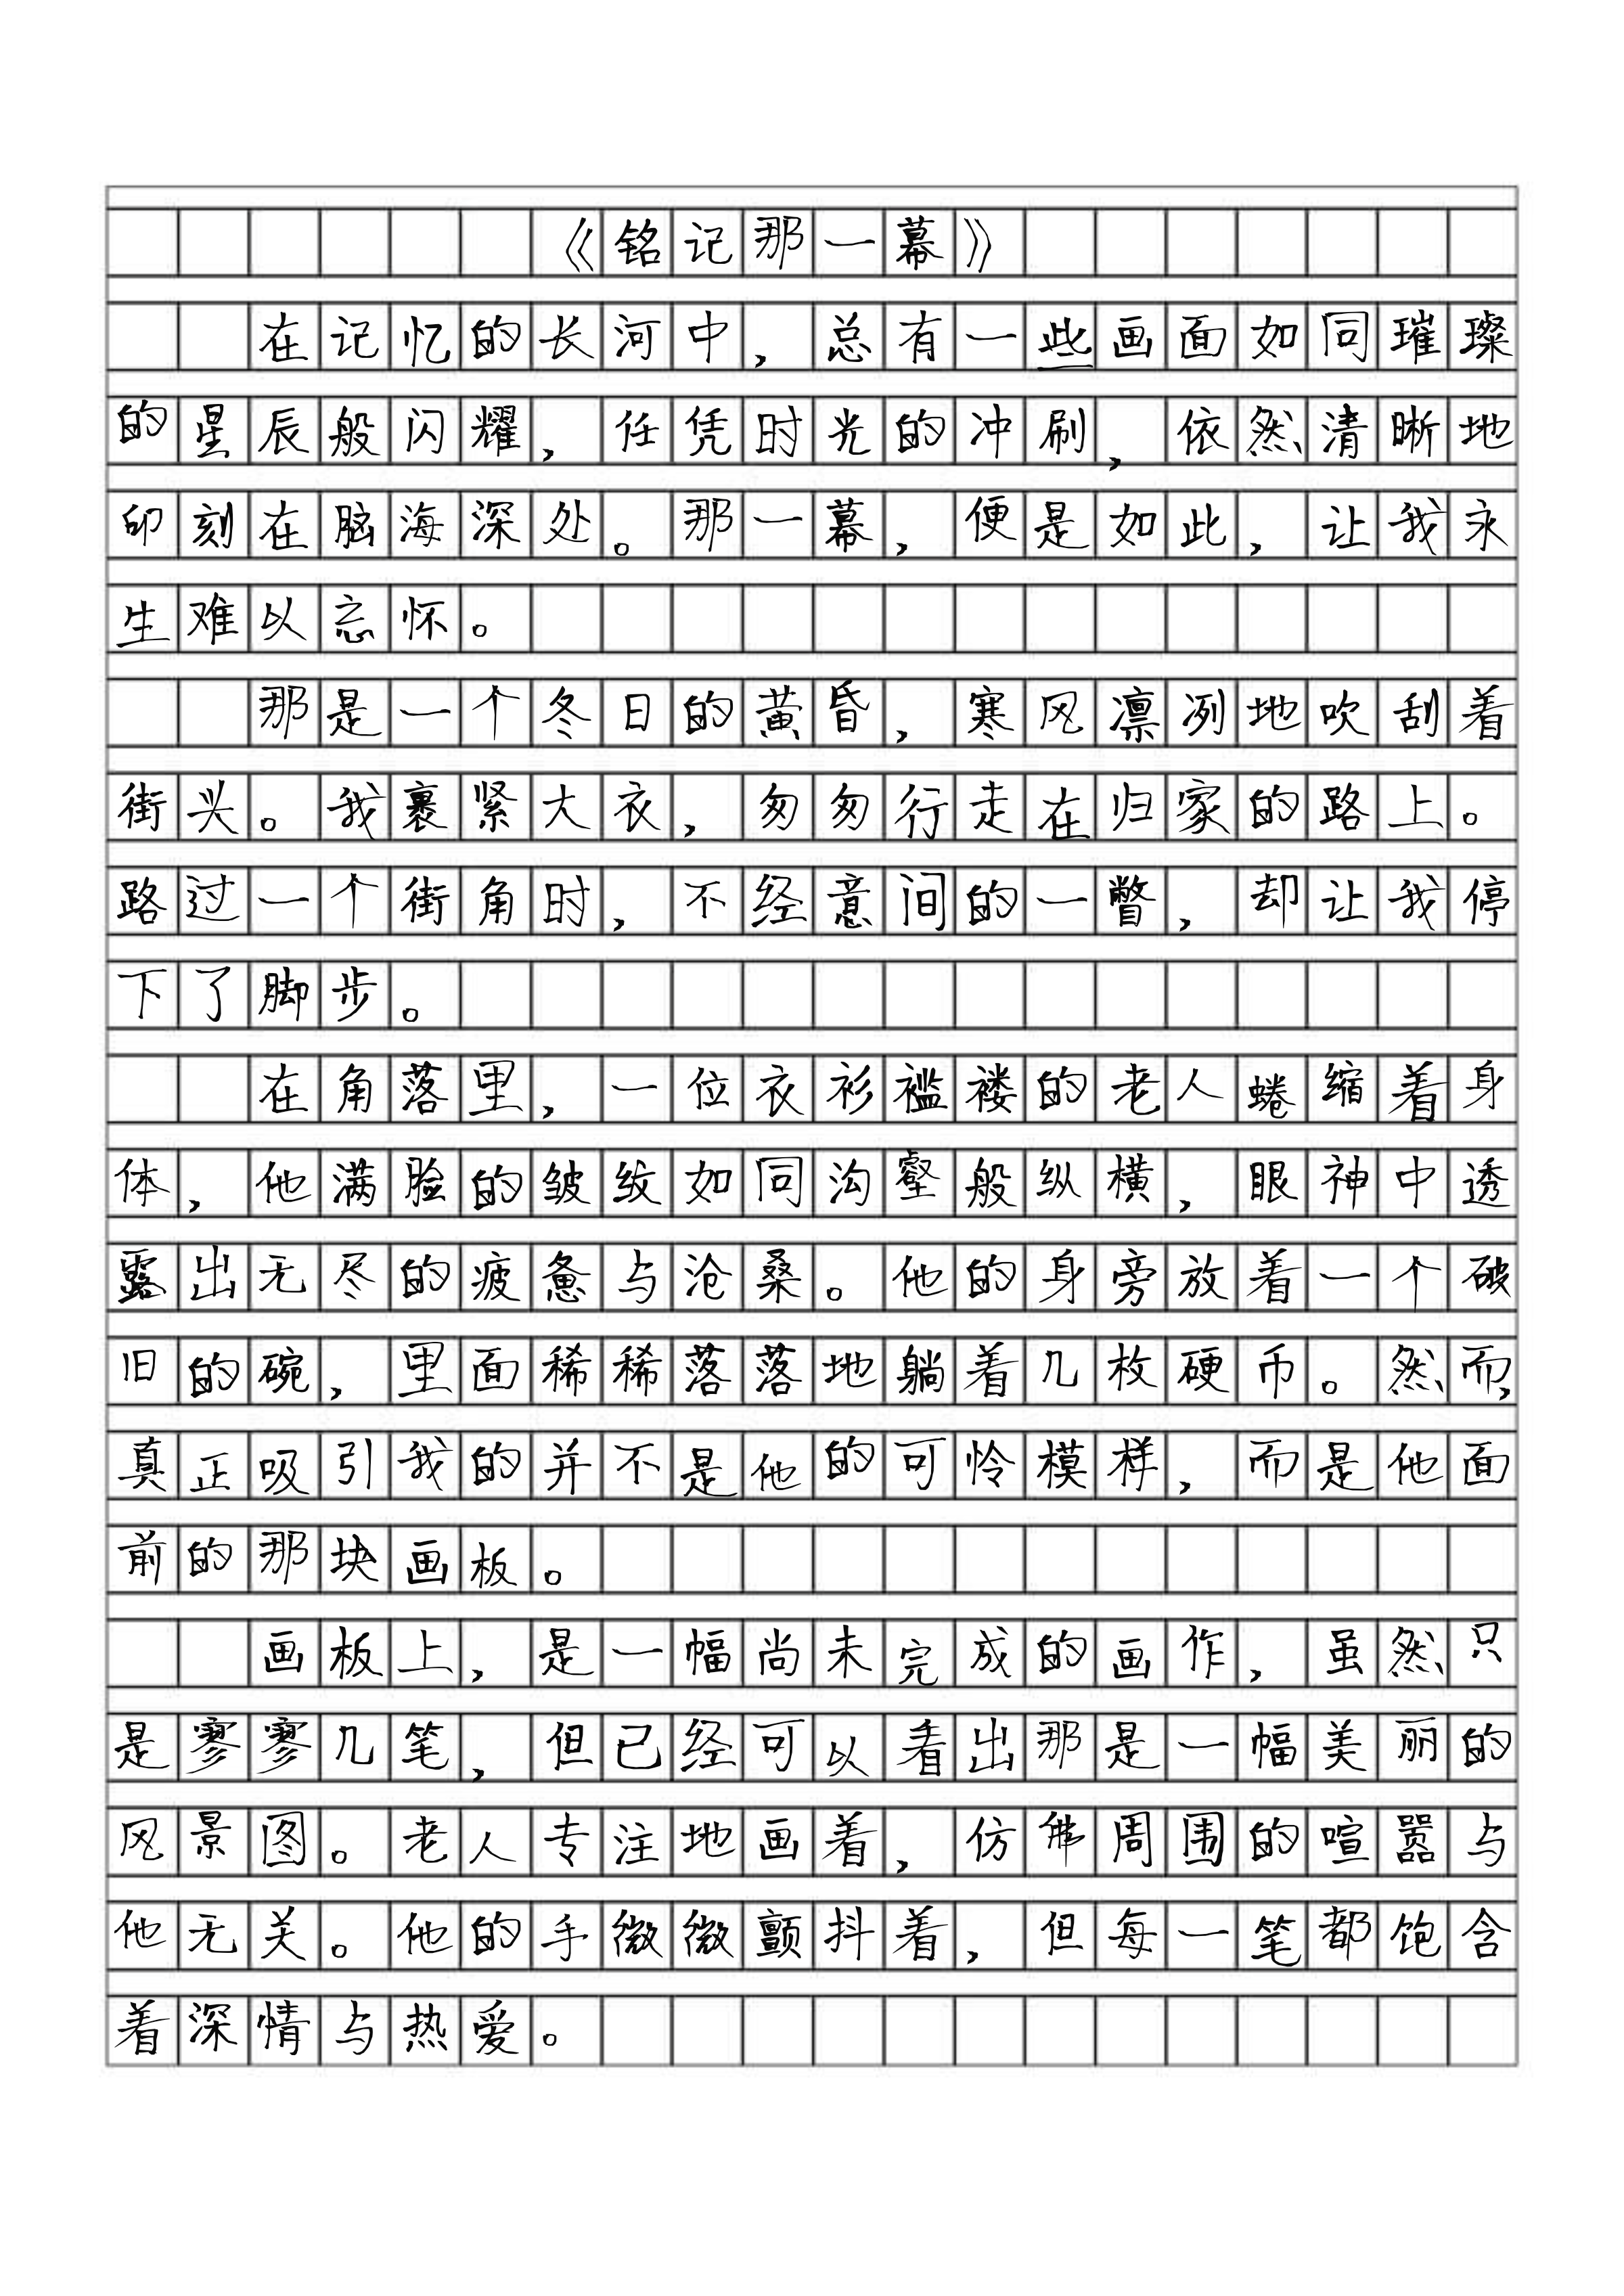 《铭记那一幕》
在记忆的长河中，总有一些画面如同璀璨
的星辰般闪耀，任凭时光的冲刷，依然清晰地
印刻在脑海深处。那一幕，便是如此，让我永
生难以忘怀。
那是一个冬日的黄昏，寒风凛冽地吹刮着
街头。我裹紧大衣，匆匆行走在归家的路上。
路过一个街角时，不经意间的一瞥，却让我停
下了脚步。
在角落里，一位衣衫褴褛的老人蜷缩着身
体，他满脸的皱纹如同沟壑般纵横，眼神中透
露出无尽的疲惫与沧桑。他的身旁放着一个破
旧的碗，里面稀稀落落地躺着几枚硬币。然而，
真正吸引我的并不是他的可怜模样，而是他面
前的那块画板。
画板上，是一幅尚未完成的画作，虽然只
是寥寥几笔，但已经可以看出那是一幅美丽的
风景图。老人专注地画着，仿佛周围的喧嚣与
他无关。他的手微微颤抖着，但每一笔都饱含
着深情与热爱。